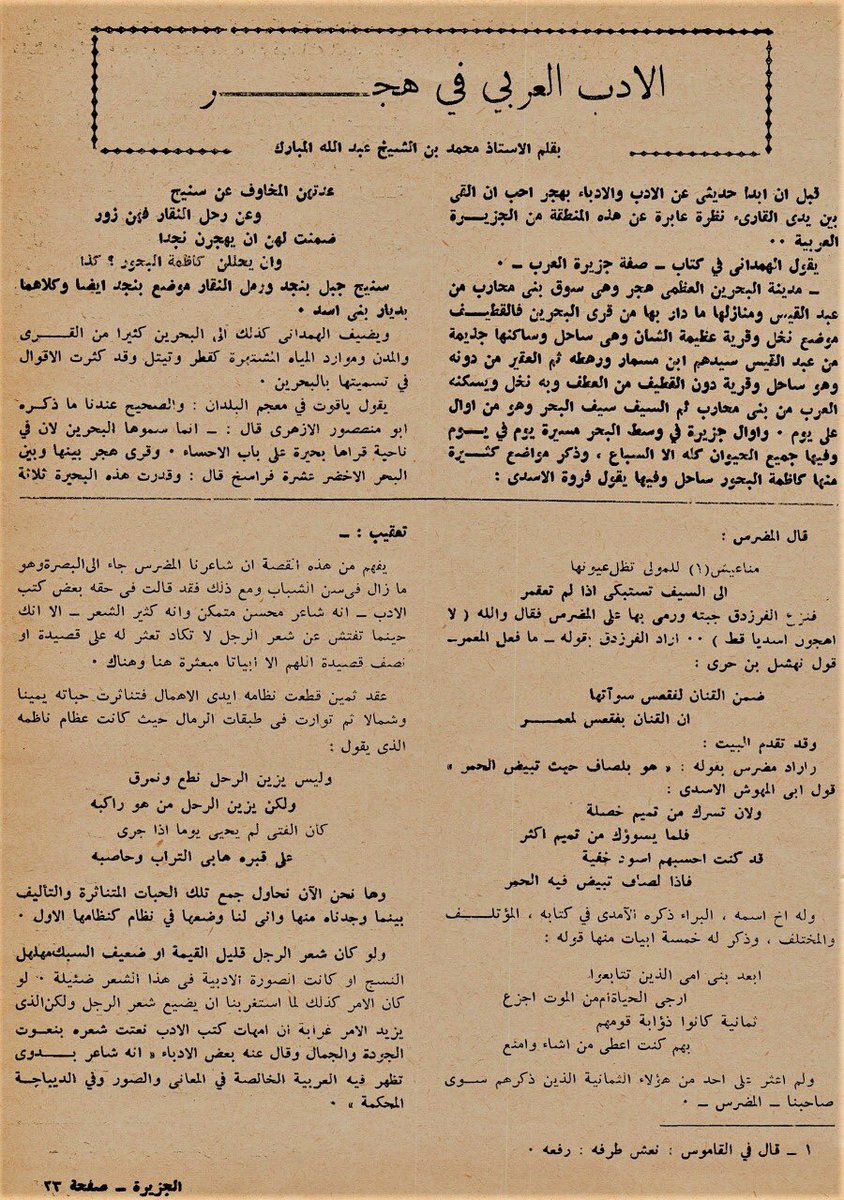 الادب العربي في هجـــــــر
بقلم الاستاذ محمد بن الشيخ عبد الله المبارك
قبل ان ابدأ حديثى عن الادب والادباء بهجر احب ان القى
بين يدى القارىء نظرة عابرة عن هذه المنطقة من الجزيـــرة
العربية ٠٠
يقول الهمدانى في كتاب ــ صفة جزيرة العرب ــ ٠
ــ مدينة البحرين العظمى هجر وهى سوق بنى محارب من
عبد القيس ومنازلها ما دار بها من قرى البحرين فالقطيــف
موضع نخل وقرية عظيمة الشان وهى ساحل وساكنها جذيمة
من عبد القيس سيدهم ابن مسمار ورهطه ثم العقير من دونه
وهو ساحل وقرية دون القطيف من العطف وبه نخل ويسكنه
العرب من بنى محارب ثم السيف سيف البحر وهو من اوال
على يوم ٠ واوال جزيرة في وسط البحر مسيرة يوم في يـــوم
وفيها جميع الحيوان كله الا السباع ، وذكر مواضع كثـــيرة
منها كاظمة البحور ساحل وفيها يقول فروة الاسدى :
عدتهن المخاوف عن سنيج
وعن رحل النقار فهن زور
ضمنت لهن ان يهجرن نجدا
وان يحللن كاظمة البحور ؟ كذا
سنيج جبل بنجد ورمل النقار موضع بنجد ايضا وكلاهما
بديار بنى اسد ٠
ويضيف الهمدانى كذلك الى البحرين كثيرا من القـــرى
والمدن وموارد المياه المشتهرة كقطر وتيتل وقد كثرت الاقوال
في تسميتها بالبحرين ٠
يقول ياقوت في معجم البلدان : والصحيح عندنا ما ذكـره
ابو منصصور الازهرى قال : ــ انما سموها البحرين لان في
ناحية قراها بحيرة على باب الاحساء ٠ وقرى هجر بينها وبين
البحر الاخضر عشرة فراسخ قال : وقدرت هذه البحيرة ثلاثة
قال المضرس :
مناعيش(١) للمولى تظل عيونها
الى السيف تستبكى اذا لم تعقمر
فنزع الفرزدق جبته ورمى بها على المضرس فقال والله ( لا
اهجون اسديا قط ) ٠٠ اراد الفرزدق بقوله ــ ما فعل المعمرــ
قول نهشل بن حرى :
ضمن القنان لفقعس سوآتها
ان القنان بفقعس لمعمـــر
وقد تقدم البيت :
راراد مضرس بقوله : « هو بلصاف حيث تبيض الحمر »
قول ابى المهوش الاسدى :
ولان تسرك من تميم خصلة
فلما يسوؤك من تميم اكثر
قد كنت احسبهم اسود خفية
فاذا لصاف تبيض فيه الحمر
وله اخ اسمه ، البراء ذكره الآمدى في كتابه ، المؤتلــف
والمختلف ، وذكر له خمسة ابيات منها قوله :
ابعد بنى امى الذين تتابعوا
ارجى الحياةام من الموت اجزع
ثمانية كانوا ذؤابة قومهم
بهم كنت اعطى من اشاء وامنع
ولم اعثر على احد من هؤلاء الثمانية الذين ذكرهم سـوى
صاحبنا ــ المضرس ــ ٠
١ ــ قال في القاموس : نعش طرفه : رفعه ٠
تعقيب : ــ
يفهم من هذه القصة ان شاعرنا المضرس جاء الىالبصرةوهو
ما زال فى سن الشباب ومع ذلك فقد قالت في حقه بعض كتب
الادب ــ انه شاعر محسن متمكن وانه كثير الشعر ــ الا انك
حينما تفتش عن شعر الرجل لا تكاد تعثر له على قصيدة او
نصف قصيدة اللهم الا ابياتا مبعثرة هنا وهناك ٠
عقد ثمين قطعت نظامه ايدى الاهمال فتناثرت حباته يمينا
وشمالا ثم توارت فى طبقات الرمال حيث كانت عظام ناظمه
الذى يقول :
وليس يزين الرحل نطع ونمرق
ولكن يزين الرحل من هو راكبه
كان الفتى لم يحيى يوما اذا جرى
على قبره هابى التراب وحاصبه
وها نحن الآن نحاول جمع تلك الحبات المتناثرة والتأليف
بينما وجدناه منها وانى لنا وضعها في نظام كنظامها الاول ٠
ولو كان شعر الرجل قليل القيمة او ضعيف السبكمهلهل
النسج او كانت الصورة الادبية فى هذا الشعر ضئيلة ٠ لو
كان الامر كذلك لما استغربنا ان يضيع شعر الرجل ولكنالذى
يزيد الامر غرابة ان امهات كتب الادب نعتت شعره بنعوت
الجودة والجمال وقال عنه بعض الادباء « انه شاعر بـــدوى
تظهر فيه العربية الخالصة في المعانى والصور وفي الديباجـة
المحكمة » ٠
الجزيرة ــ صفحة ٢٣